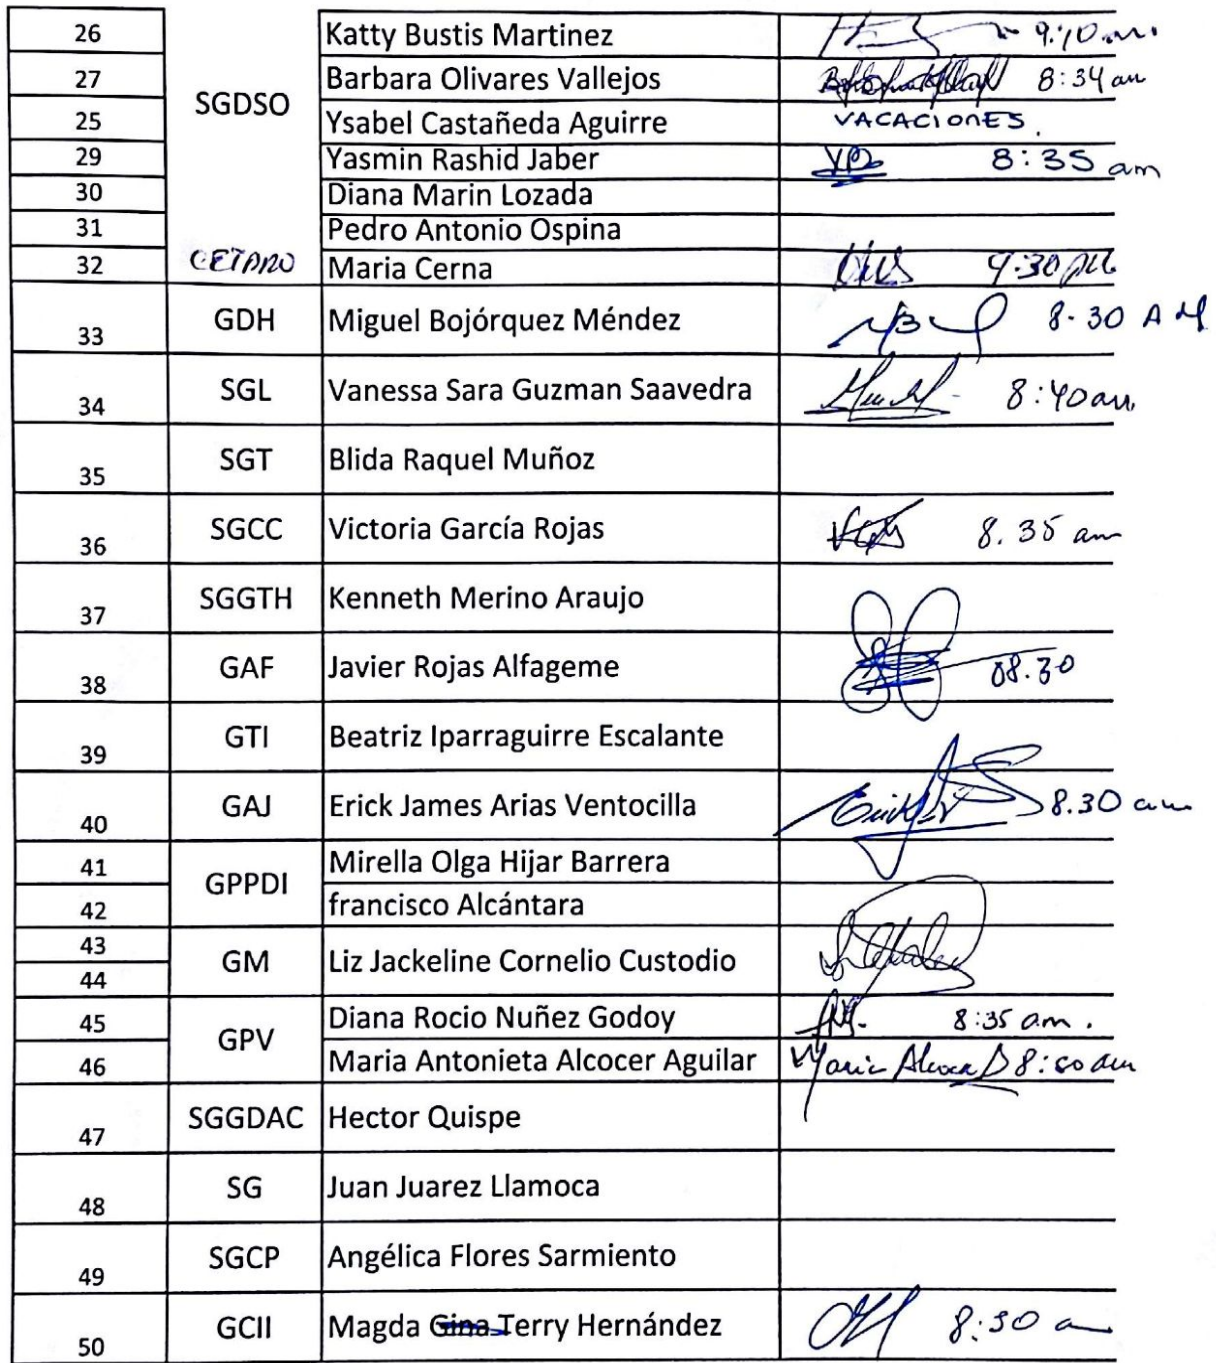 26 Katty Bustis Martinez 9:10 am.
27 Barbara Olivares Vallejos 8:34 am
SGDSO
25 Ysabel Castañeda Aguirre VACACIONES.
29 Yasmin Rashid Jaber 8:35 am
30 Diana Marin Lozada
31 Pedro Antonio Ospina
32 CETPRO Maria Cerna
33 GDH Miguel Bojórquez Méndez 8.30 AM
34 SGL Vanessa Sara Guzman Saavedra 8:40 am
35 SGT Blida Raquel Muñoz
36 SGCC Victoria García Rojas 8.35 am
37 SGGTH Kenneth Merino Araujo
38 GAF Javier Rojas Alfageme 08.30
39 GTI Beatriz Iparraguirre Escalante
40 GAJ Erick James Arias Ventocilla 8.30 am
41 Mirella Olga Hijar Barrera
GPPDI
42 francisco Alcántara
43
44 GM Liz Jackeline Cornelio Custodio
45 Diana Rocio Nuñez Godoy 8:35 am.
GPV
46 Maria Antonieta Alcocer Aguilar Maria
47 SGGDAC Hector Quispe
48 SG Juan Juarez Llamoca
49 SGCP Angélica Flores Sarmiento
50 GCII Magda Gina Terry Hernández 8:30 a